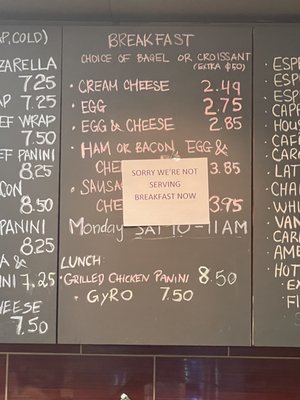 AP, COLD)
ZARELLA
7.25
AP 7.25
EF WRAP
7.50
EF PANINI
8.25
CON
8.50
PANINI
8.25
A &
NI 7.25
HEESE
7.50
BREAKFAST
CHOICE OF BAGEL OR CROISSANT
(EXTRA $50)
· CREAM CHEESE 2.49
· EGG 2.75
· EGG & CHEESE 2.85
· HAM OR BACON, EGG &
CHE 3.85
· SAUSA
CHE 3.95
SORRY WE'RE NOT
SERVING
BREAKFAST NOW
Monday SAT 10-11AM
LUNCH:
· GRILLED CHICKEN PANINI 8.50
· GYRO 7.50
ESP
ESPR
ESPR
CAPP
HOUS
CAFE
CARA
LATT
CHAI
WHI
VAN
CAR
AME
HOT
EX
FL